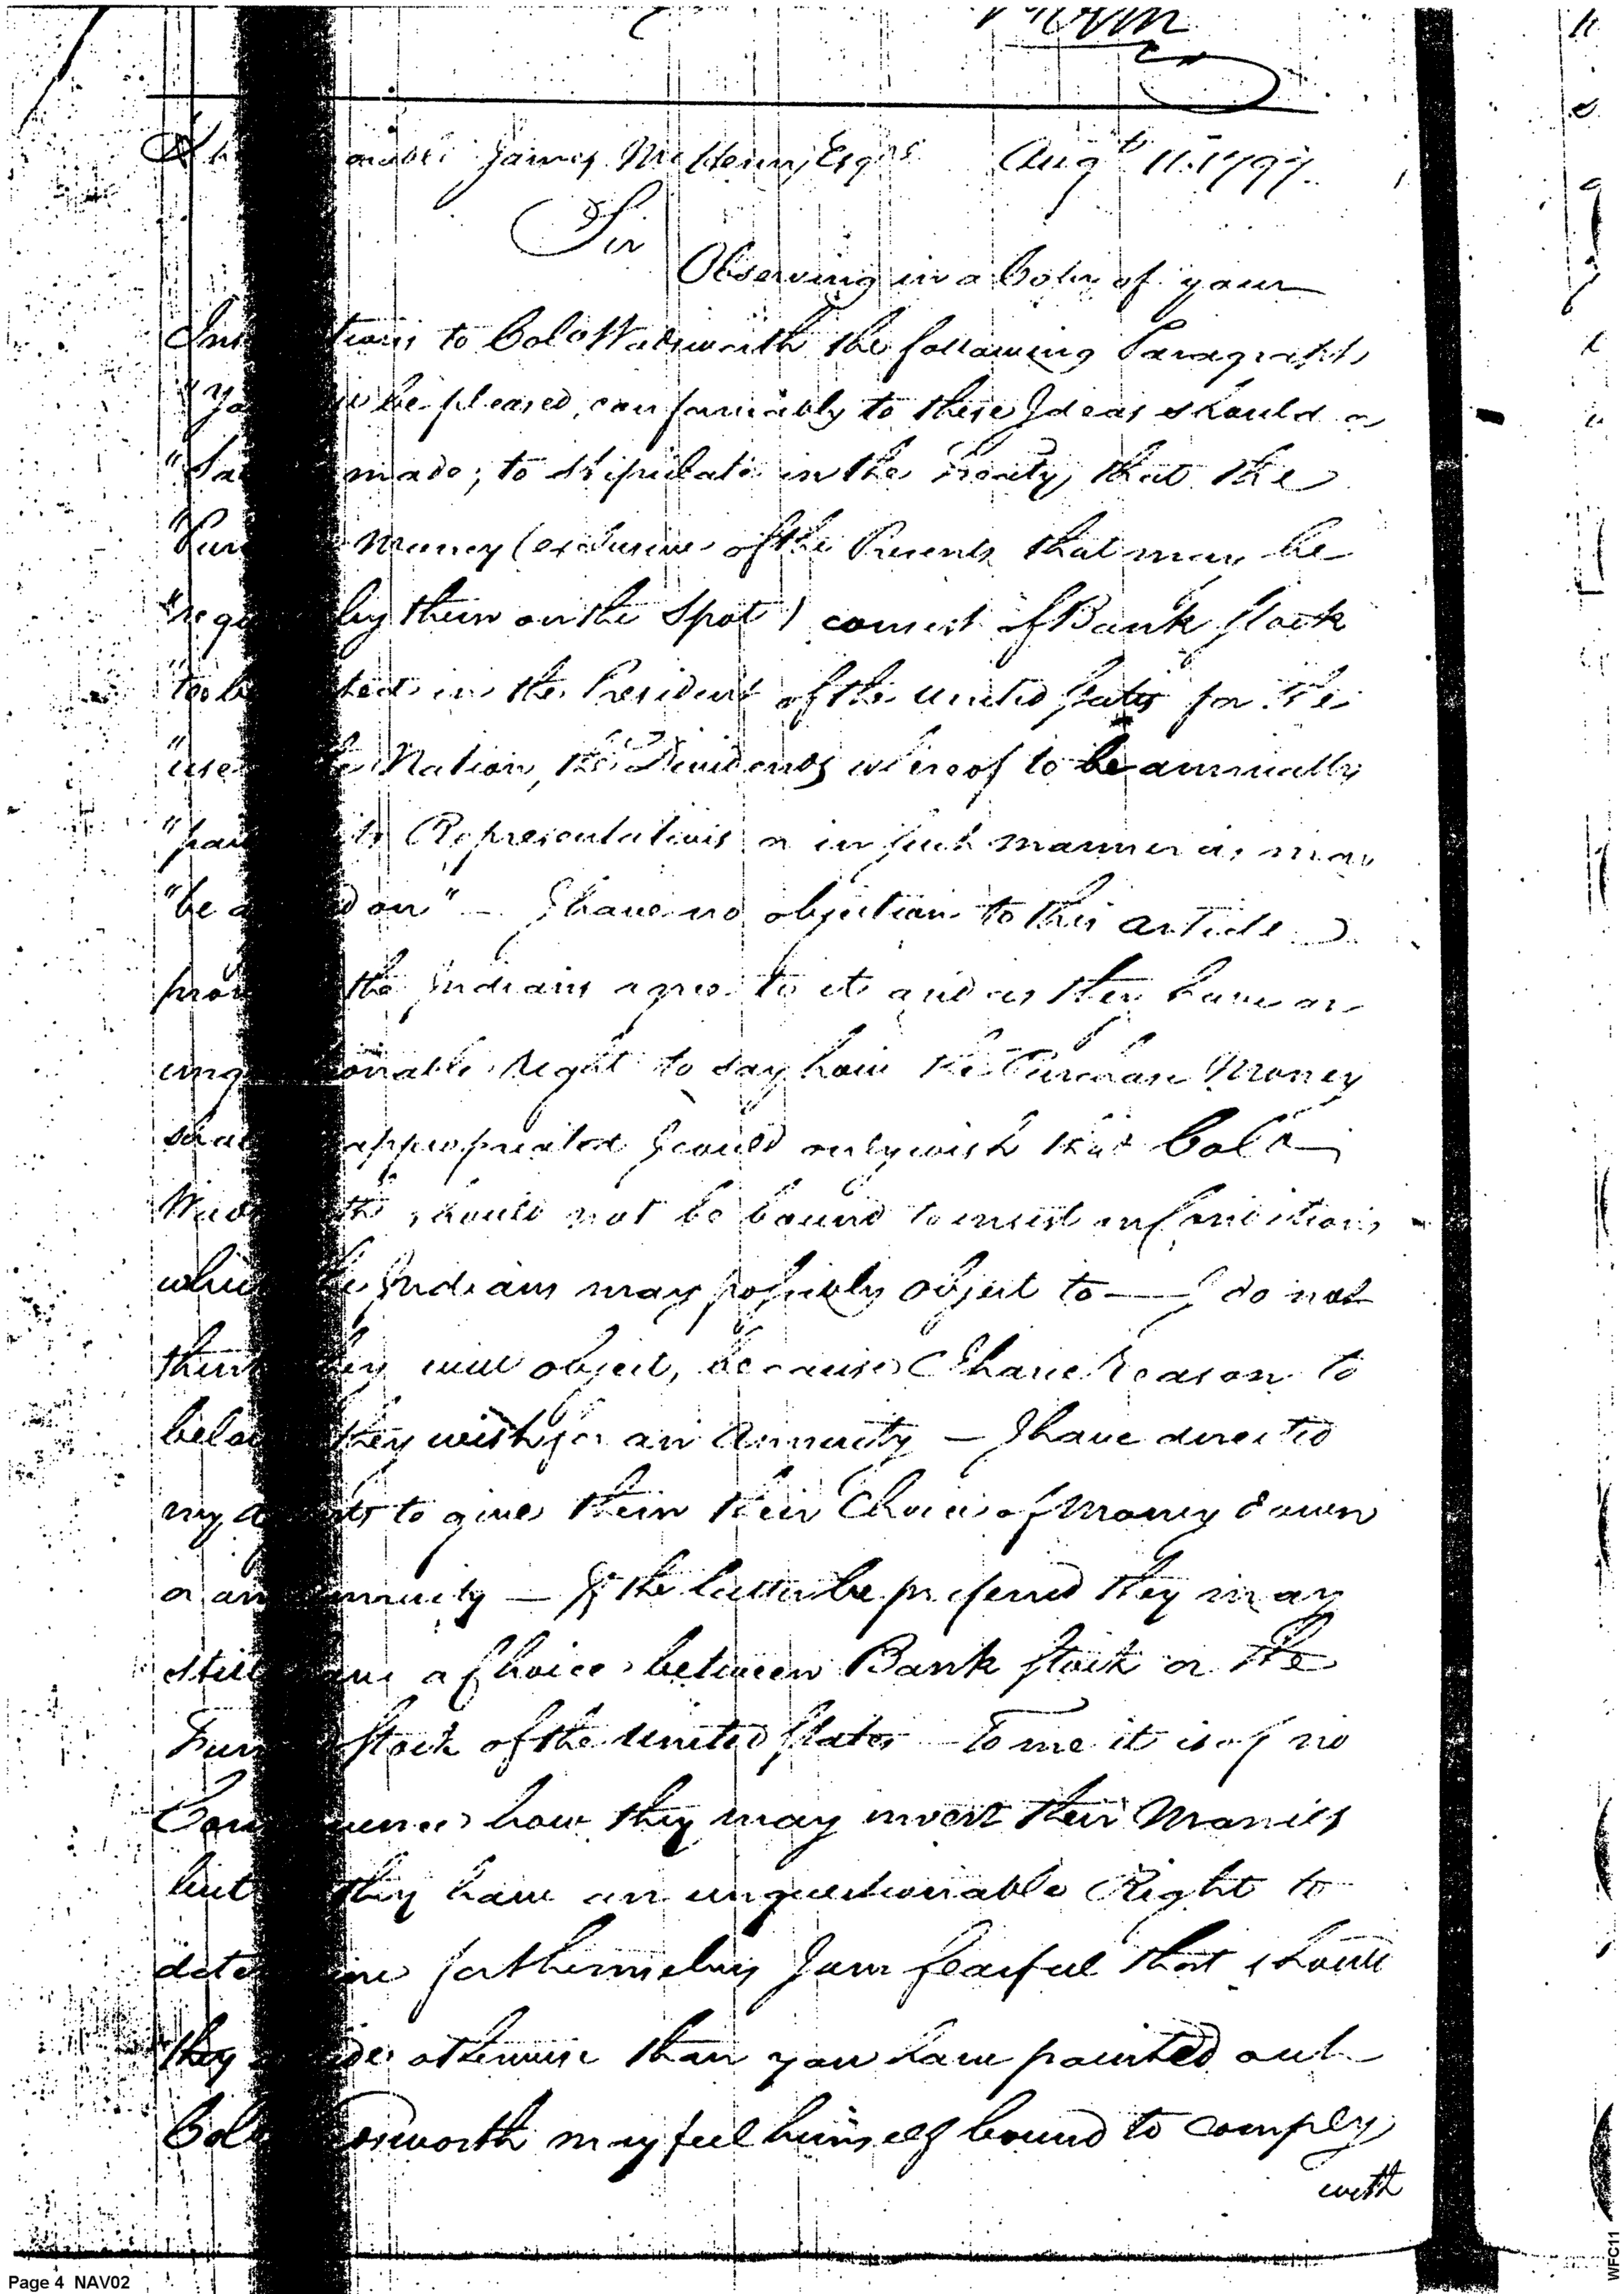 James McHenry Esqre Augt 11. 1797.
Sir
Observing in a Copy of your
Ins tions to Colo Wadsworth the following Paragraph
"Yo be pleased, conformably to these Ideas should a
"Sa made; to stipulate in the treaty, that the
"Pur money (exclusive of the Presents that may be
"requ by them on the Spot) consist of Bank Stock
"to be sted in the President of the United States for the
"use Nation, the Dividends whereof to be annually
"pai Representatives or in such manner as may
"be a d on" — I have no objection to this article
prov the Indians agree to it and as they have an
unq onable Right to say how the Purchase Money
shal appropriated I could only wish that Colo
Wad th should not be bound to insist on Conditions
whic Indians may possibly object to — I do not
thin hey will object, because I have Reason to
belei they wish for an Annuity — I have directed
my a nts to give them their Choice of Money down
or an nnuity — If the latter be preferred they may
still ave a Choice between Bank Stock or the
Fun Stock of the United States — To me it is of no
Cons uence how they may invest their Monies
but they have an unquestionable Right to
dete ine for themselves I am fearful that should
they ide otherwise than you have pointed out
Colo dsworth may feel himself bound to comply
with
Page 4 NAV02
WFC11